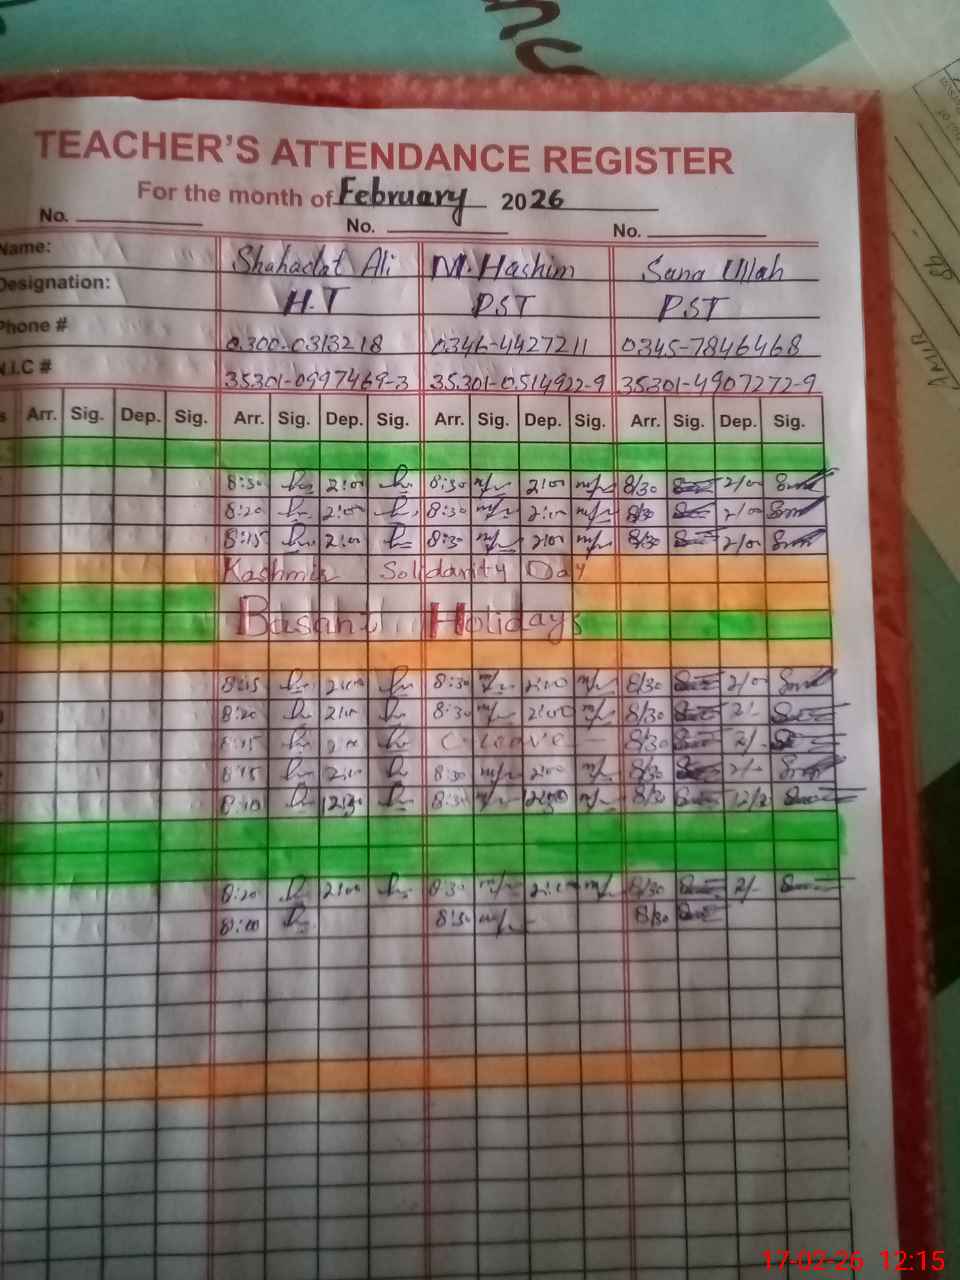 TEACHER'S ATTENDANCE REGISTER
For the month of February 2026
No. No. No.
Name: Shahadat Ali M. Hashim Sana Ullah
Designation: H.T PST PST
Phone # 0300-0313218 0346-4427211 0345-7846468
N.I.C # 35301-0997469-3 35301-0514922-9 35301-4907272-9
Arr. Sig. Dep. Sig. Arr. Sig. Dep. Sig. Arr. Sig. Dep. Sig. Arr. Sig. Dep. Sig.
8:30 2:00 8:30 2:00 8/30 2/00
8:20 2:00 8:30 2:00 8/30 2/00
8:15 2:00 8:30 2:00 8/30 2/00
Kashmir Solidarity Day
Basant Holidays
8:15 2:00 8:30 2:00 8/30 2/00
8:20 2:00 8:30 2:00 8/30 2/-
8:15 C-leave 8/30 2/-
8:15 2:00 8:30 2:00 8/30 2/-
8:10 12:30 8:30 12:30 8/30
8:20 2:00 8:30 2:00 8/30 2/-
8:00 8:30 8/30
17-02-26 12:15